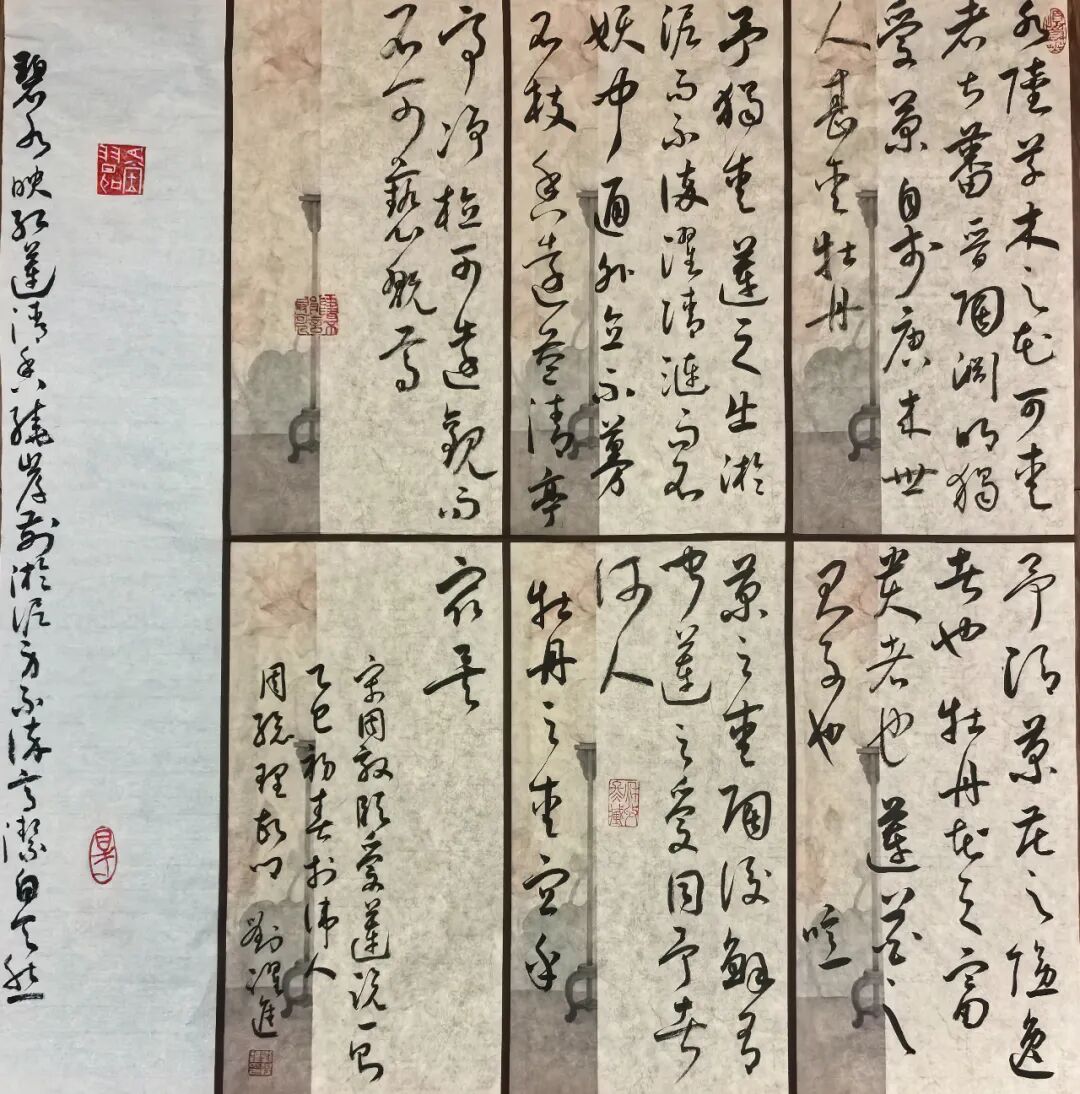 水陸草木之花可愛
者甚蕃晋陶渊明獨
愛菊自李唐来世
人甚愛牡丹
予獨愛蓮之出淤
泥而不染濯清漣而不
妖中通外直不蔓
不枝香遠益清亭
亭净植可遠觀而
不可褻翫焉
予謂菊花之隱逸
者也牡丹花之富
貴者也蓮花之
君子也噫
菊之愛陶後鮮有
聞蓮之愛同予者
何人
牡丹之愛宜乎
衆矣
宋周敦頤愛蓮説一
乙巳初春於偉人
周總理故
劉濯進
碧水映紅蓮清香繞岸前淤泥方不染高潔自天然